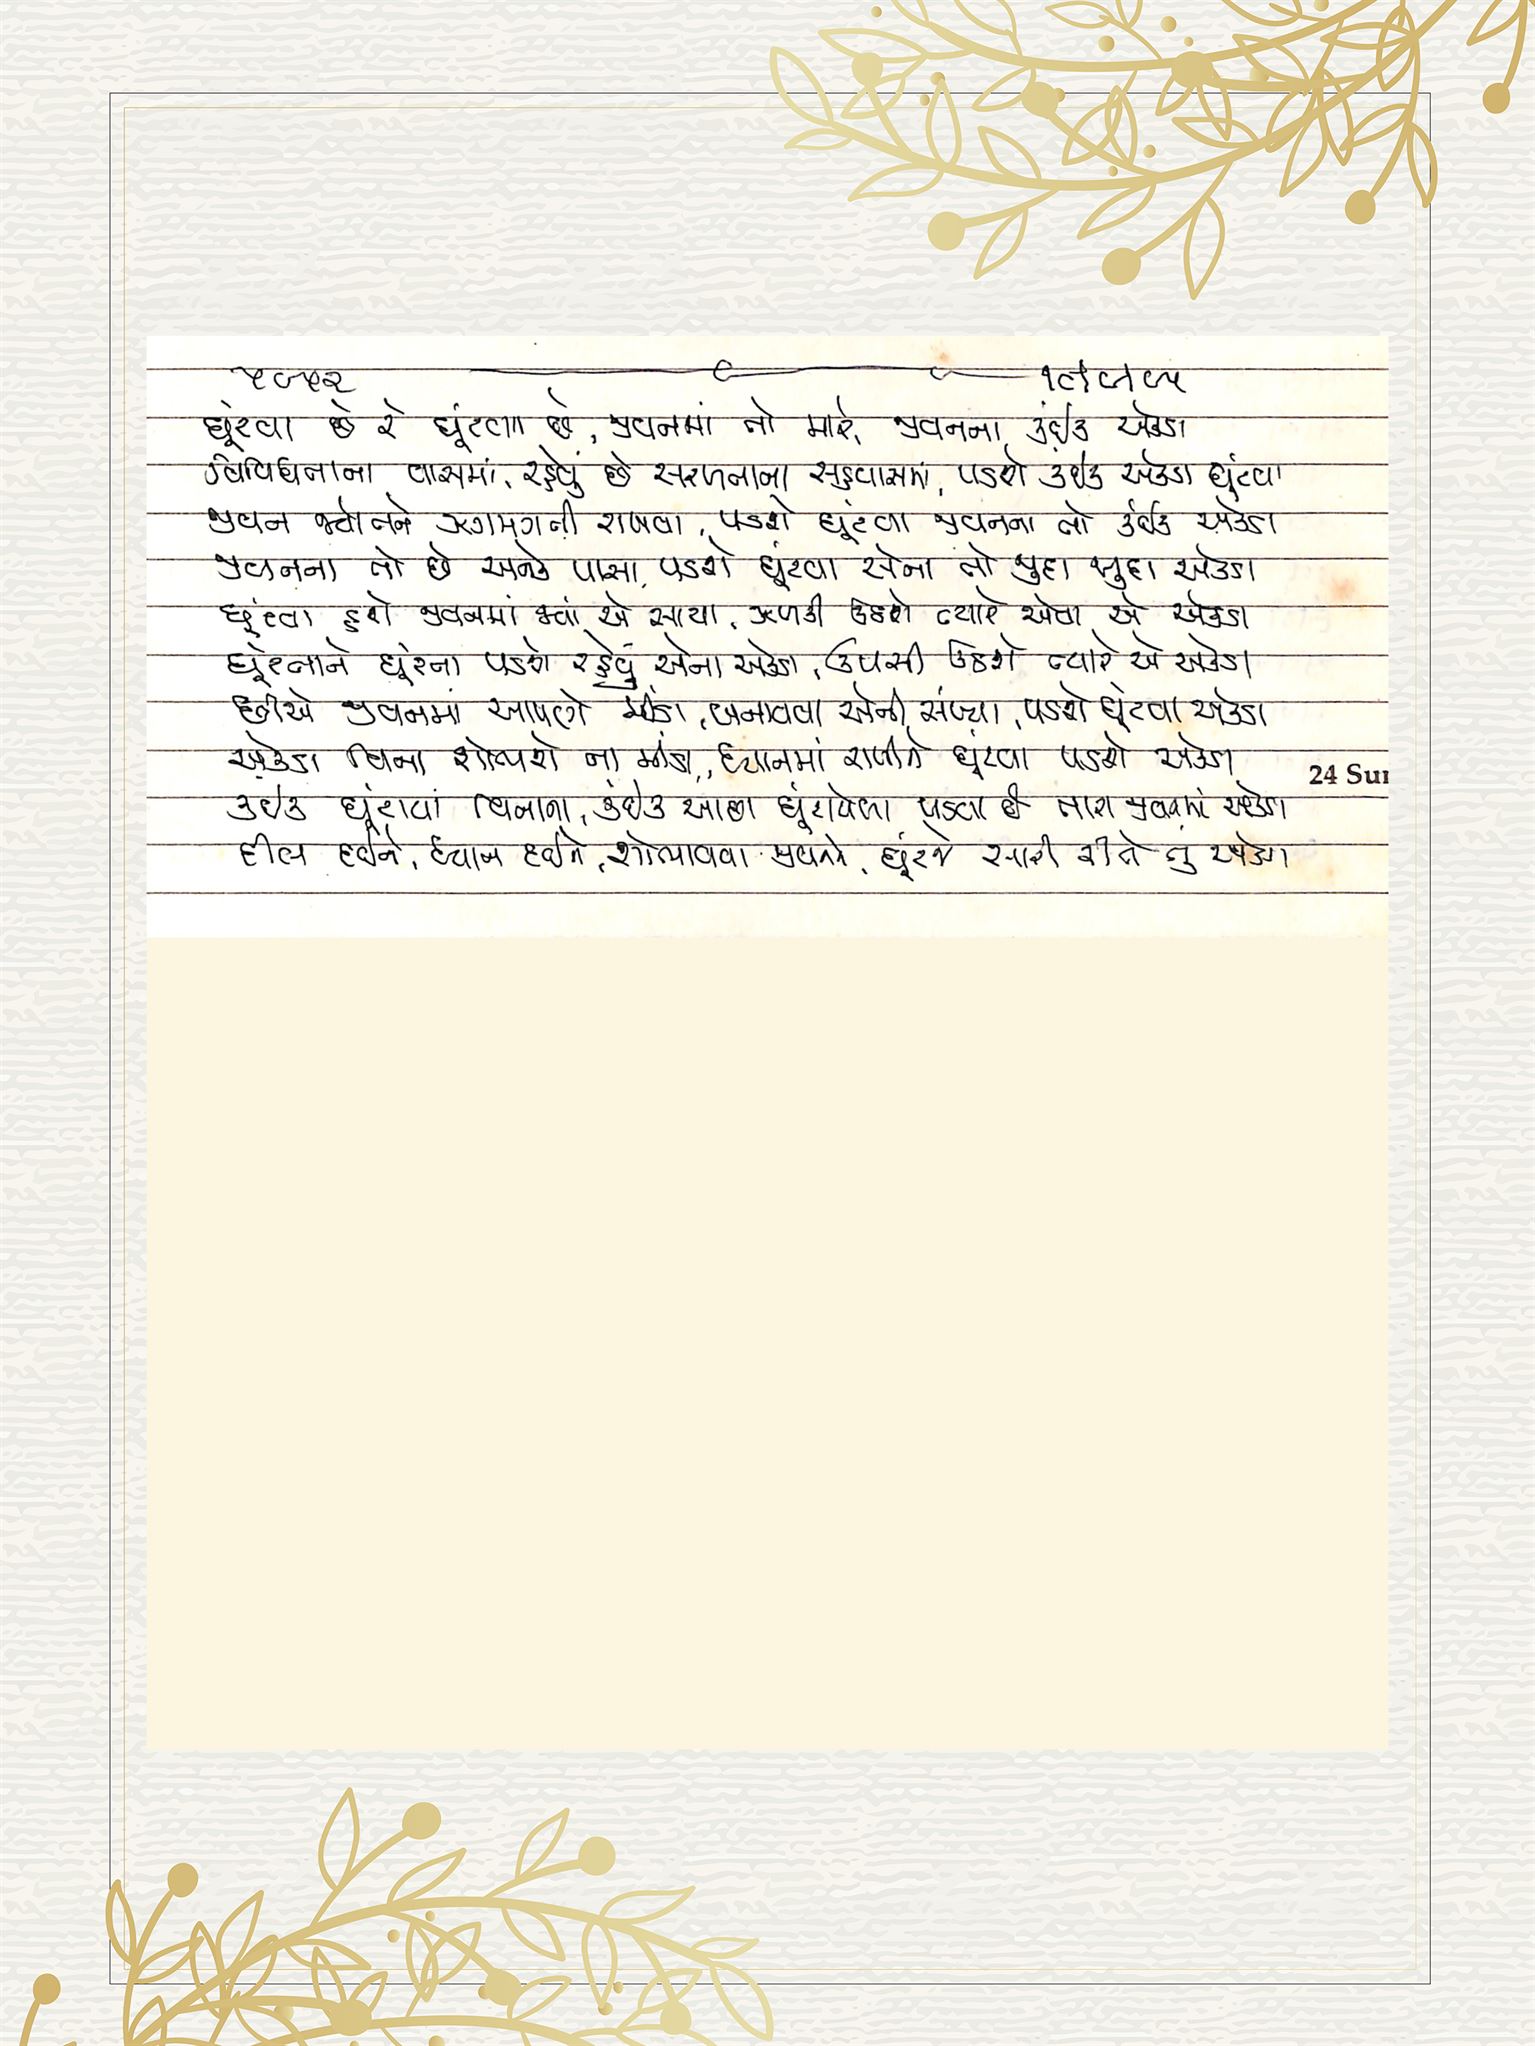 ઘૂંટવા છે રે ઘૂંટવા છે, જીવનમાં તો મારે, જીવનના કંઈક એકડા
વિવિધતાના વાસમાં, રહેવું છે સરળતાના સહવાસમાં, પડશે કંઈક એકડા ઘૂંટવા
જીવન જ્યોતને ઝગમગતી રાખવા, પડશે ઘૂંટવા જીવનના તો કંઈક એકડા
જીવનના તો છે અનેક પાસા, પડશે ઘૂંટવા એના તો જુદા જુદા એકડા
ઘૂંટવા હશે જીવનમાં જ્યાં એ સાચા, ઝળકી ઉઠશે ત્યારે એવા એ એકડા
ઘૂંટતાને ઘૂંટતા પડશે રહેવું એના એકડા, ઉપસી ઉઠશે ત્યારે એ એકડા
છીએ જીવનમાં આપણે મીંડા, બનાવવા એની સંખ્યા, પડશે ઘૂંટવા એકડા
એકડા વિના શોભશે ના મીંડા, ધ્યાનમાં રાખીને ઘૂંટવા પડશે એકડા
કંઈક ઘૂંટાયા વિનાના, કંઈક આછા ઘૂંટાયેલા પડયા છે તારા જીવનમાં એકડા
દીલ દઈને, ધ્યાન દઈને, શોભાવવા જીવનને, ઘૂંટજે સારી રીતે તું એકડા
24 Sun